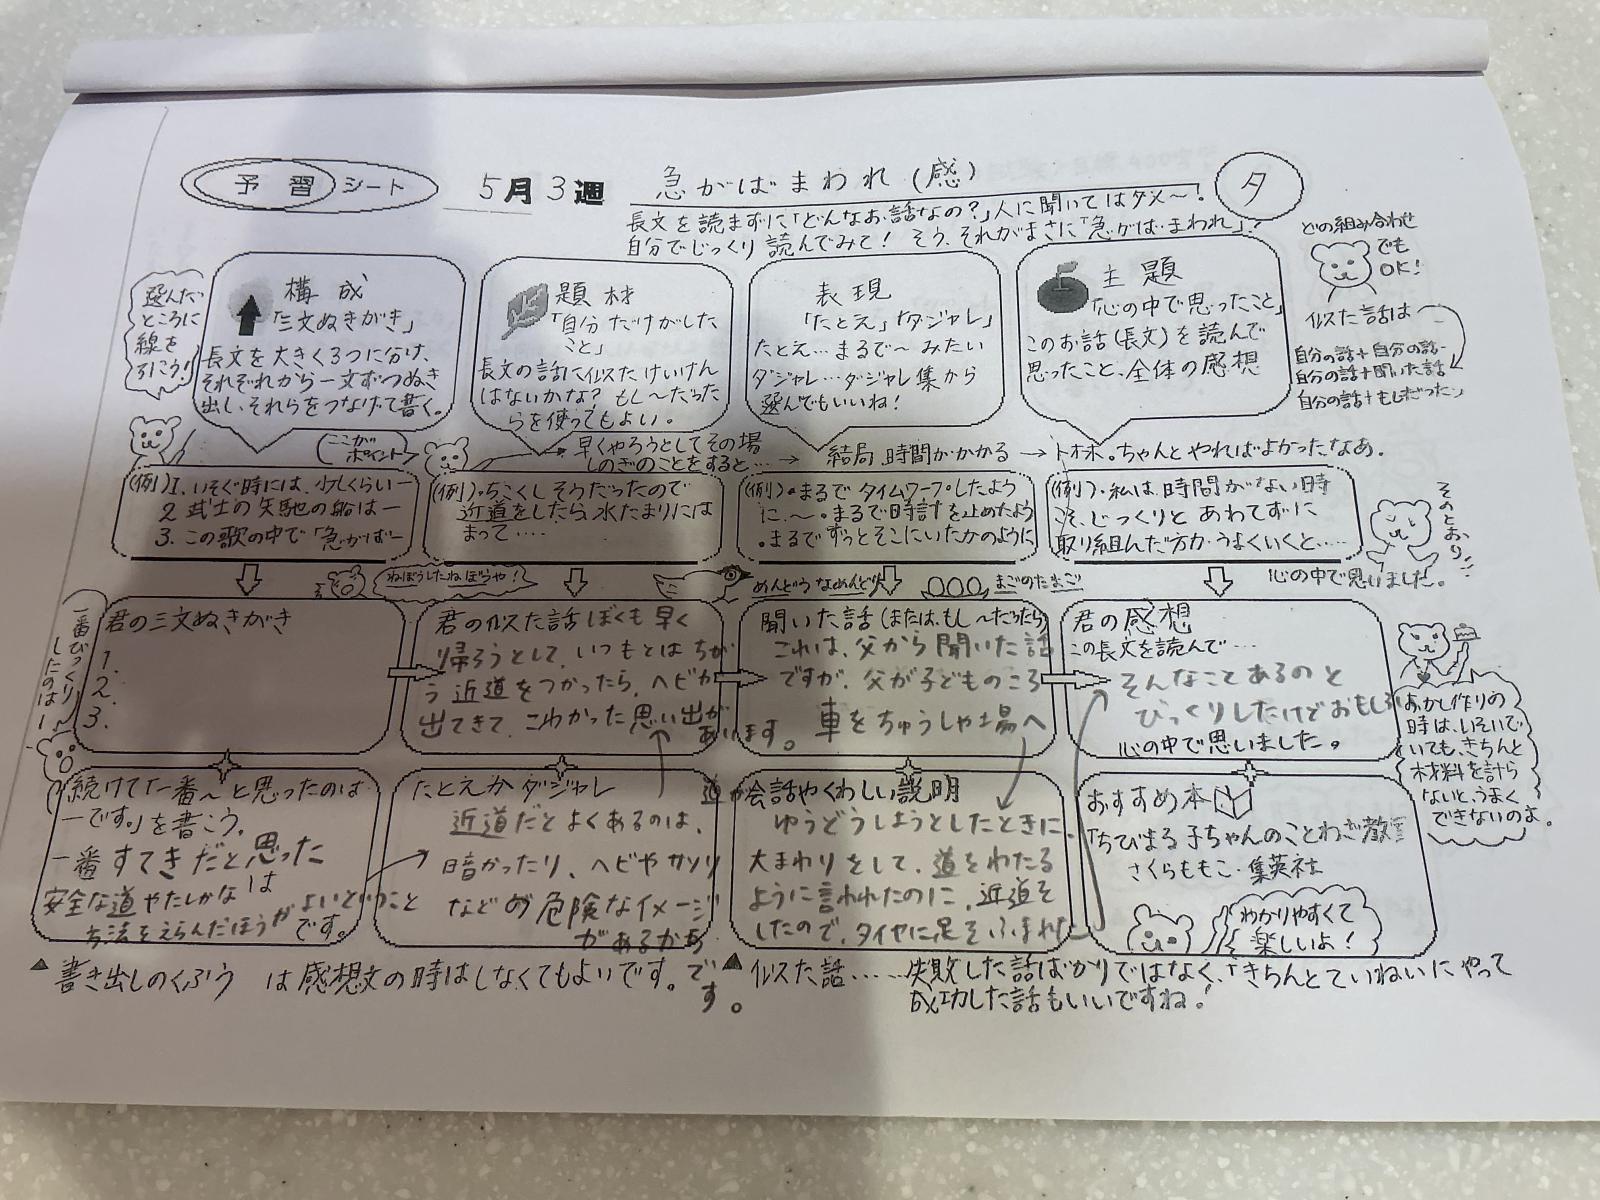 予習シート
5月3週
急がばまわれ(感)
夕
長文を読まずに「どんなお話なの?」人に聞いてはダメ〜!
自分でじっくり読んでみて! そう、それがまさに「急がば・まわれ」!
選んだ
ところに
線を
引こう!
構成
「三文ぬきがき」
長文を大きく3つに分け、
それぞれから一文ずつぬき
出し、それらをつなげて書く。
題材
「自分だけがした
こと」
長文の話に似たけいけん
はないかな? もし〜だった
らを使ってもよい。
表現
「たとえ」「ダジャレ」
たとえ…まるで〜みたい
ダジャレ…ダジャレ集から
選んでもいいね!
主題
「心の中で思ったこと」
このお話(長文)を読んで
思ったこと、全体の感想
どの組み合わせ
でも
OK!
似た話は
自分の話+自分の話
自分の話+聞いた話
自分の話+もしだった
ここが
ポイント
早くやろうとしてその場
しのぎのことをすると…
→ 結局、時間がかかる →
ちゃんとやればよかったなあ。
(例)1. いそぐ時には、少しくらいー
2 武士の矢馳の船はー
3. この歌の中で「急がばー
(例)・ちこくしそうだったので
近道をしたら、水たまりには
まって・・・・
(例)・まるでタイムワープしたよう
に、〜。まるで時計を止めたよう
・まるでずっとそこにいたかのように
(例)・私は、時間がない時
こそ、じっくりとあわてずに
取り組んだ方がうまくいくと、・・・・
心の中で思いました。
そのとおり!!
ねぼうしたねぼうや!
めんどうなめんどり
まごのたまご
一番びっくり
したのはー!
君の三文ぬきがき
1.
2.
3.
君の似た話 ぼくも早く
帰ろうとして、いつもとはちが
う近道をつかったら、ヘビが
出てきて、こわかった思い出が
あります。
聞いた話(または、もし〜だったら)
これは、父から聞いた話
ですが、父が子どものころ
車をちゅうしゃ場へ
君の感想
この長文を読んで・・・
そんなことあるのと
びっくりしたけどおもしろ
心の中で思いました。
おかし作りの
時は、いそいで
いても、きちんと
材料を計ら
ないと、うまく
できないのよ。
続けて「一番〜と思ったのは
ーです。」を書こう。
一番すてきだと思った
は
安全な道やたしかな
方法をえらんだほうが
よいということ
です。
たとえかダジャレ
近道だとよくあるのは、
道が
暗かったり、ヘビやサソリ
などの危険なイメージ
があるから
です。
会話やくわしい説明
ゆうどうしようとしたときに、
大まわりをして、道をわたる
ように言われたのに、近道を
したので、タイヤに足をふまれた
おすすめ本
「ちびまる子ちゃんのことわざ教室」
さくらももこ・集英社
わかりやすくて
楽しいよ!
▲書き出しのくふう は感想文の時はしなくてもよいです。
▲似た話……失敗した話ばかりではなく、「きちんとていねいにやって
成功した話もいいですね!